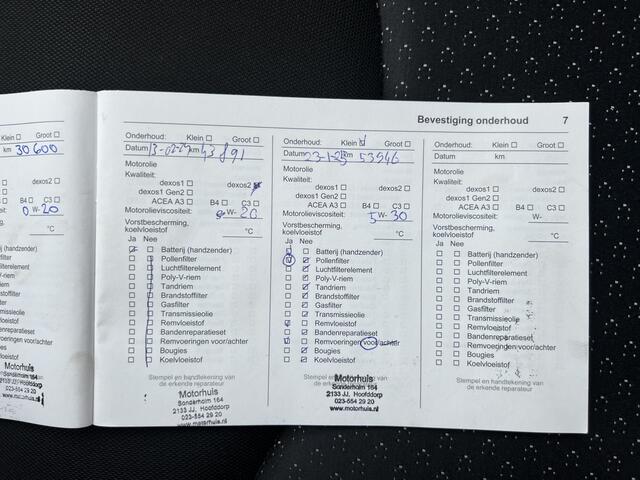 Bevestiging onderhoud 7
Groot
km 30600
B4 C3
0 W-20
°C
(handzender)
Onderhoud: Klein Groot
Datum 13-02-23 km 43891
Motorolie
Kwaliteit:
dexos1 dexos2
dexos1 Gen2
ACEA A3 B4 C3
Motorolieviscositeit: 0 W- 20
Vorstbescherming,
koelvloeistof °C
Ja Nee
Batterij (handzender)
Pollenfilter
Luchtfilterelement
Poly-V-riem
Tandriem
Brandstoffilter
Gasfilter
Transmissieolie
Remvloeistof
Bandenreparatieset
Remvoeringen voor/achter
Bougies
Koelvloeistof
Stempel en handtekening van
de erkende reparateur
Motorhuis
Sanderholm 164
2133 JJ, Hoofddorp
023-554 29 20
www.motorhuis.nl
Onderhoud: Klein Groot
Datum 23-1-25 km 53546
Motorolie
Kwaliteit:
dexos1 dexos2
dexos1 Gen2
ACEA A3 B4 C3
Motorolieviscositeit: 5 W- 30
Vorstbescherming,
koelvloeistof °C
Ja Nee
Batterij (handzender)
Pollenfilter
Luchtfilterelement
Poly-V-riem
Tandriem
Brandstoffilter
Gasfilter
Transmissieolie
Remvloeistof
Bandenreparatieset
Remvoeringen voor/achter
Bougies
Koelvloeistof
Motorhuis
Sanderholm 164
2133 JJ, Hoofddorp
023-554 29 20
www.motorhuis.nl
Onderhoud: Klein Groot
Datum km
Motorolie
Kwaliteit:
dexos1 dexos2
dexos1 Gen2
ACEA A3 B4 C3
Motorolieviscositeit: W-
Vorstbescherming,
koelvloeistof °C
Ja Nee
Batterij (handzender)
Pollenfilter
Luchtfilterelement
Poly-V-riem
Tandriem
Brandstoffilter
Gasfilter
Transmissieolie
Remvloeistof
Bandenreparatieset
Remvoeringen voor/achter
Bougies
Koelvloeistof
Stempel en handtekening van
de erkende reparateur